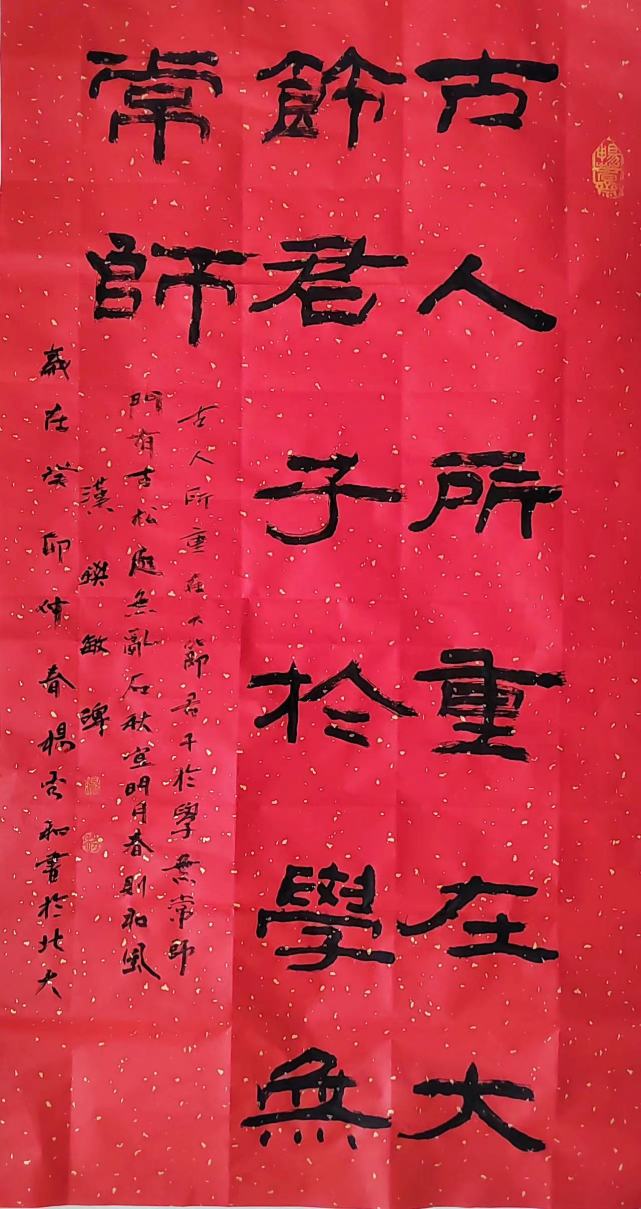 古人所重在大
飾君子於學無
常師
古人所重在大節君子於學無常師
門有古松庭無亂石秋宜明月春則和風
漢敏碑
歲在癸卯仲春楊和書於北大